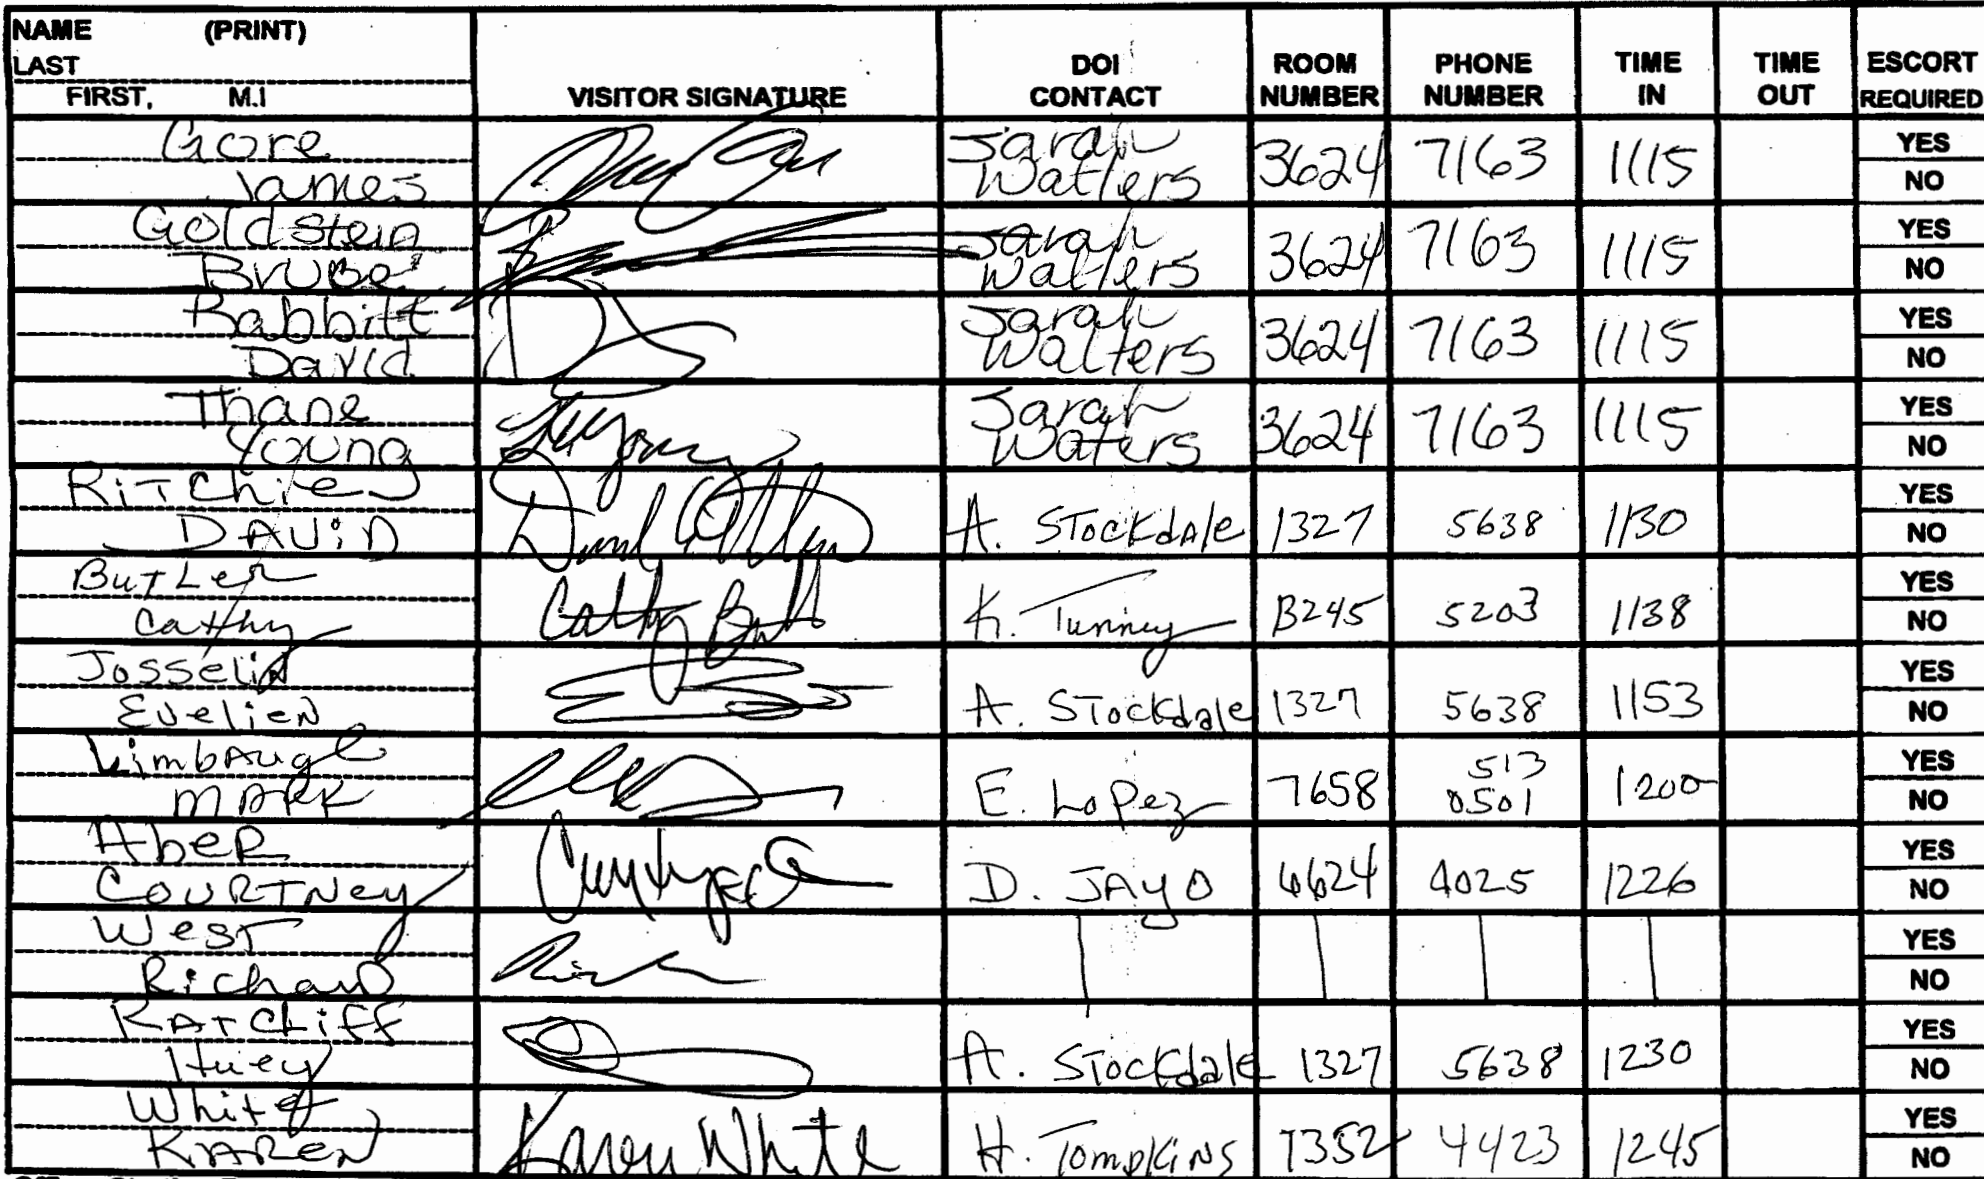 NAME (PRINT)
LAST
FIRST, M.I
VISITOR SIGNATURE
DOI CONTACT
ROOM NUMBER
PHONE NUMBER
TIME IN
TIME OUT
ESCORT REQUIRED
Gore
James
Sarah
Watlers
3624 7163 1115
YES
NO
Goldstein
Sarah
Watlers
3624 7163 1115
YES
NO
Babbitt
David
Sarah
Walters
3624 7163 1115
YES
NO
Thane
Young
Sarah
Waters
3624 7163 1115
YES
NO
RiTchie
DAViD
A. STockdAle 1327 5638 1130
YES
NO
BuTLer
Cathy
Cathy
K. Tunney B245 5203 1138
YES
NO
Josselin
EvelieN
A. STockdale 1327 5638 1153
YES
NO
LimbAugh
MARK
E. LoPez 7658 513
0501
1200
YES
NO
AbeR
COURTNey
D. JAYO 6624 4025 1226
YES
NO
WesT
RicharD
YES
NO
RATCLiff
Huey
A. STockdale 1327 5638 1230
YES
NO
White
KAReN
Karen White
H. TompKiNS 7352 4423 1245
YES
NO